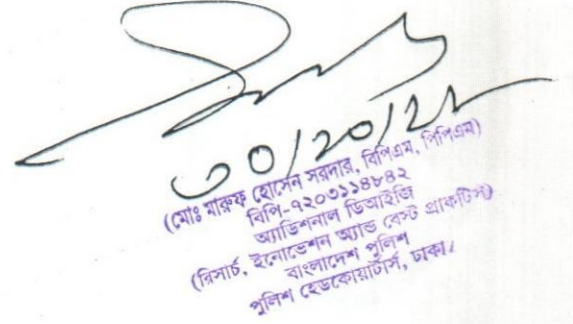 ৩০/১০/২২
(মোঃ মারুফ হোসেন সরদার, বিপিএম, পিপিএম)
বিপি-৭২০৩১১৪৮৪২
অ্যাডিশনাল ডিআইজি
(রিসার্চ, ইনোভেশন অ্যান্ড বেস্ট প্রাকটিস)
বাংলাদেশ পুলিশ
পুলিশ হেডকোয়ার্টার্স, ঢাকা।